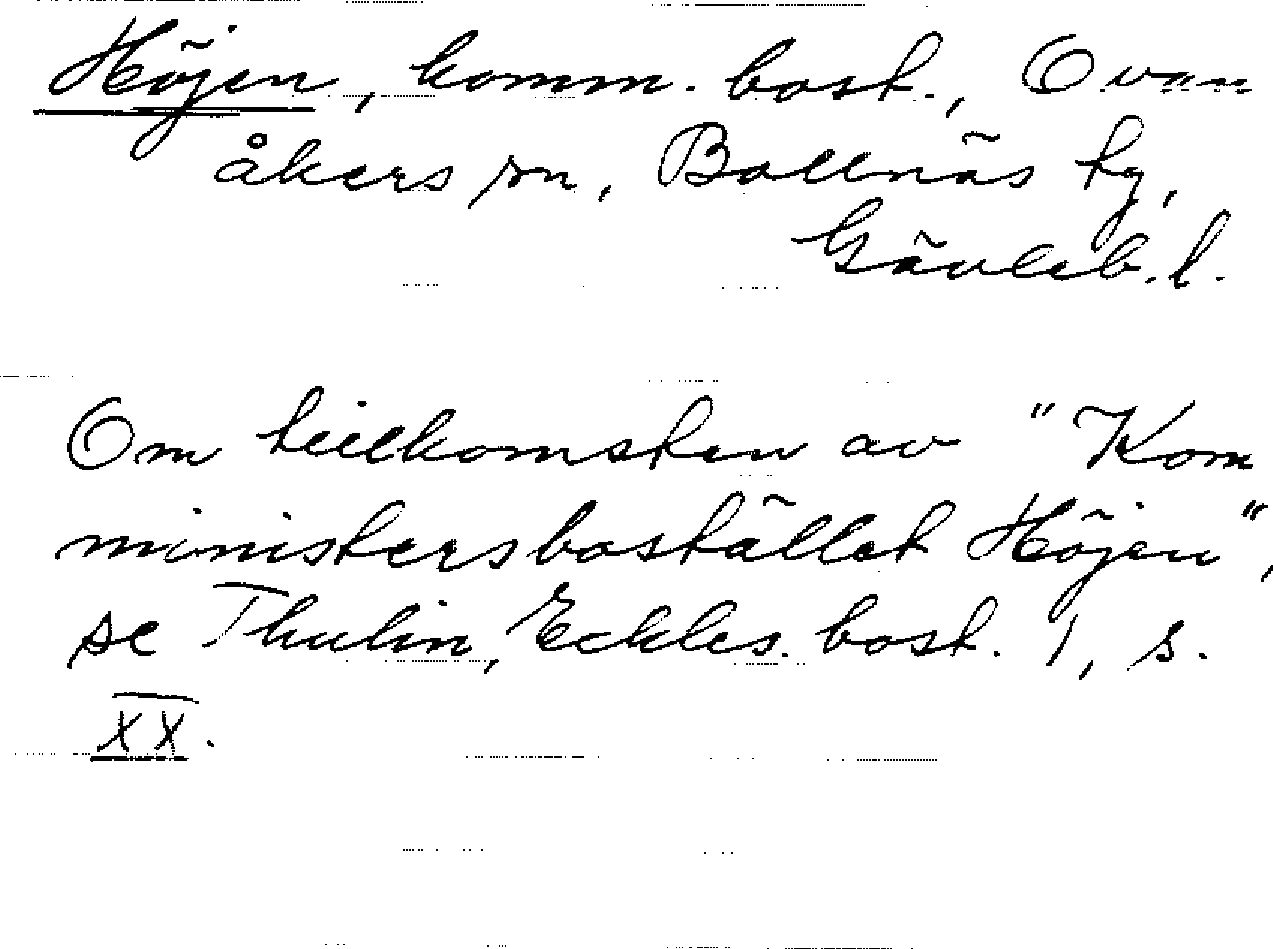 Höjen, komm. bost., Ovan
åkers sn, Bollnäs tg,
Gävleb. l.
Om tillkomsten av "Kom
ministersbostället Höjen",
se Thulin, Eckles. bost. 1, s.
XX.